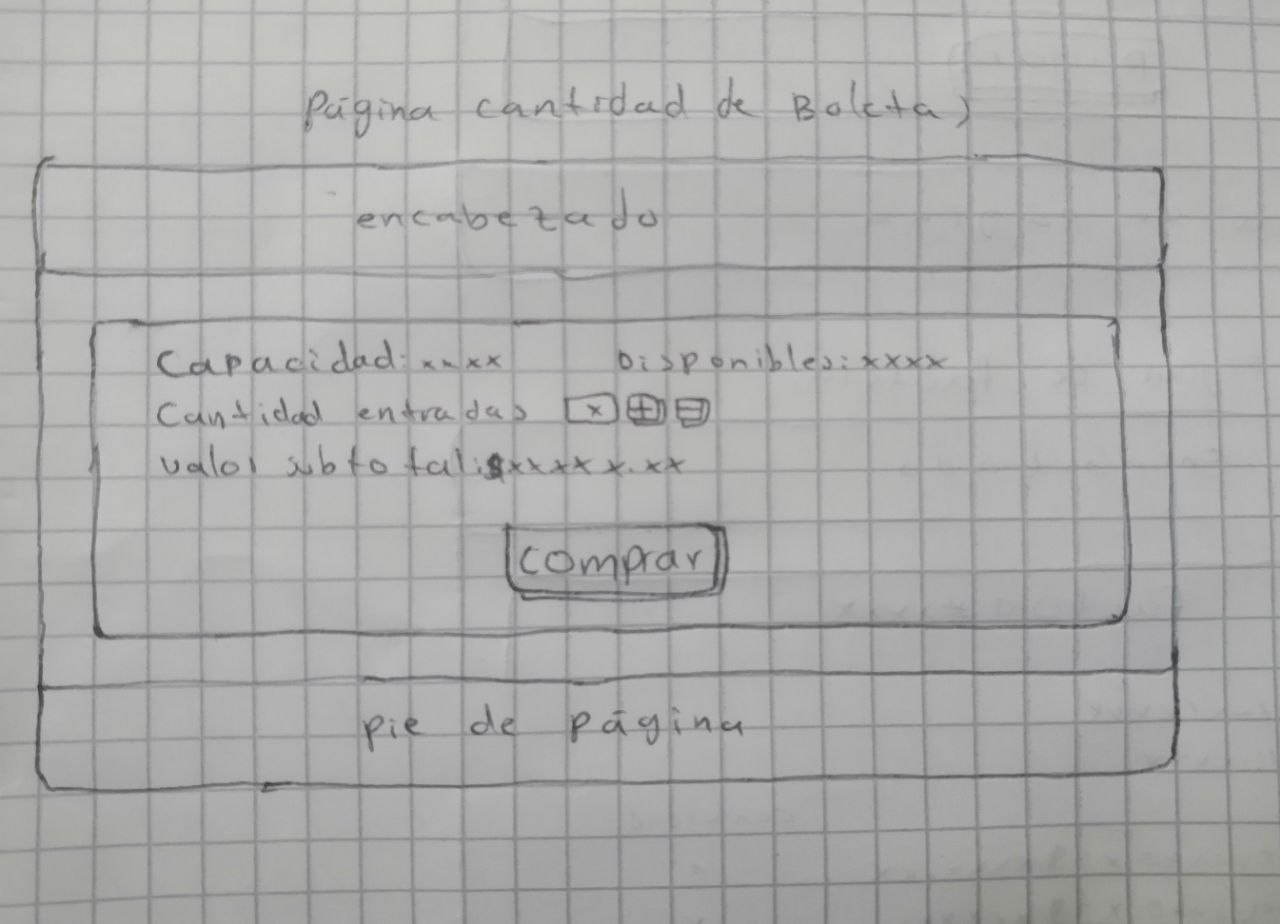 Página cantidad de Boletas
encabezado
Capacidad: xxxx Disponibles: xxxx
Cantidad entradas x + -
valor subtotal: $xxxxx.xx
comprar
pie de página